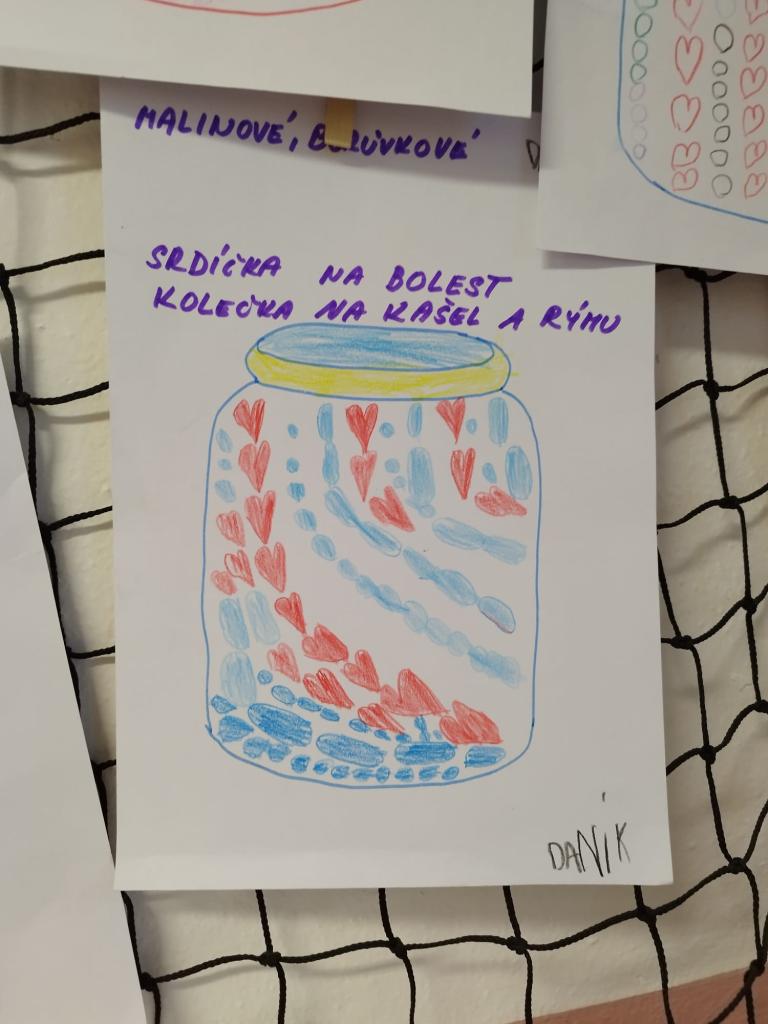 MALINOVÉ, BORŮVKOVÉ
SRDÍČKA NA BOLEST
KOLEČKA NA KAŠEL A RÝMU
DANIK